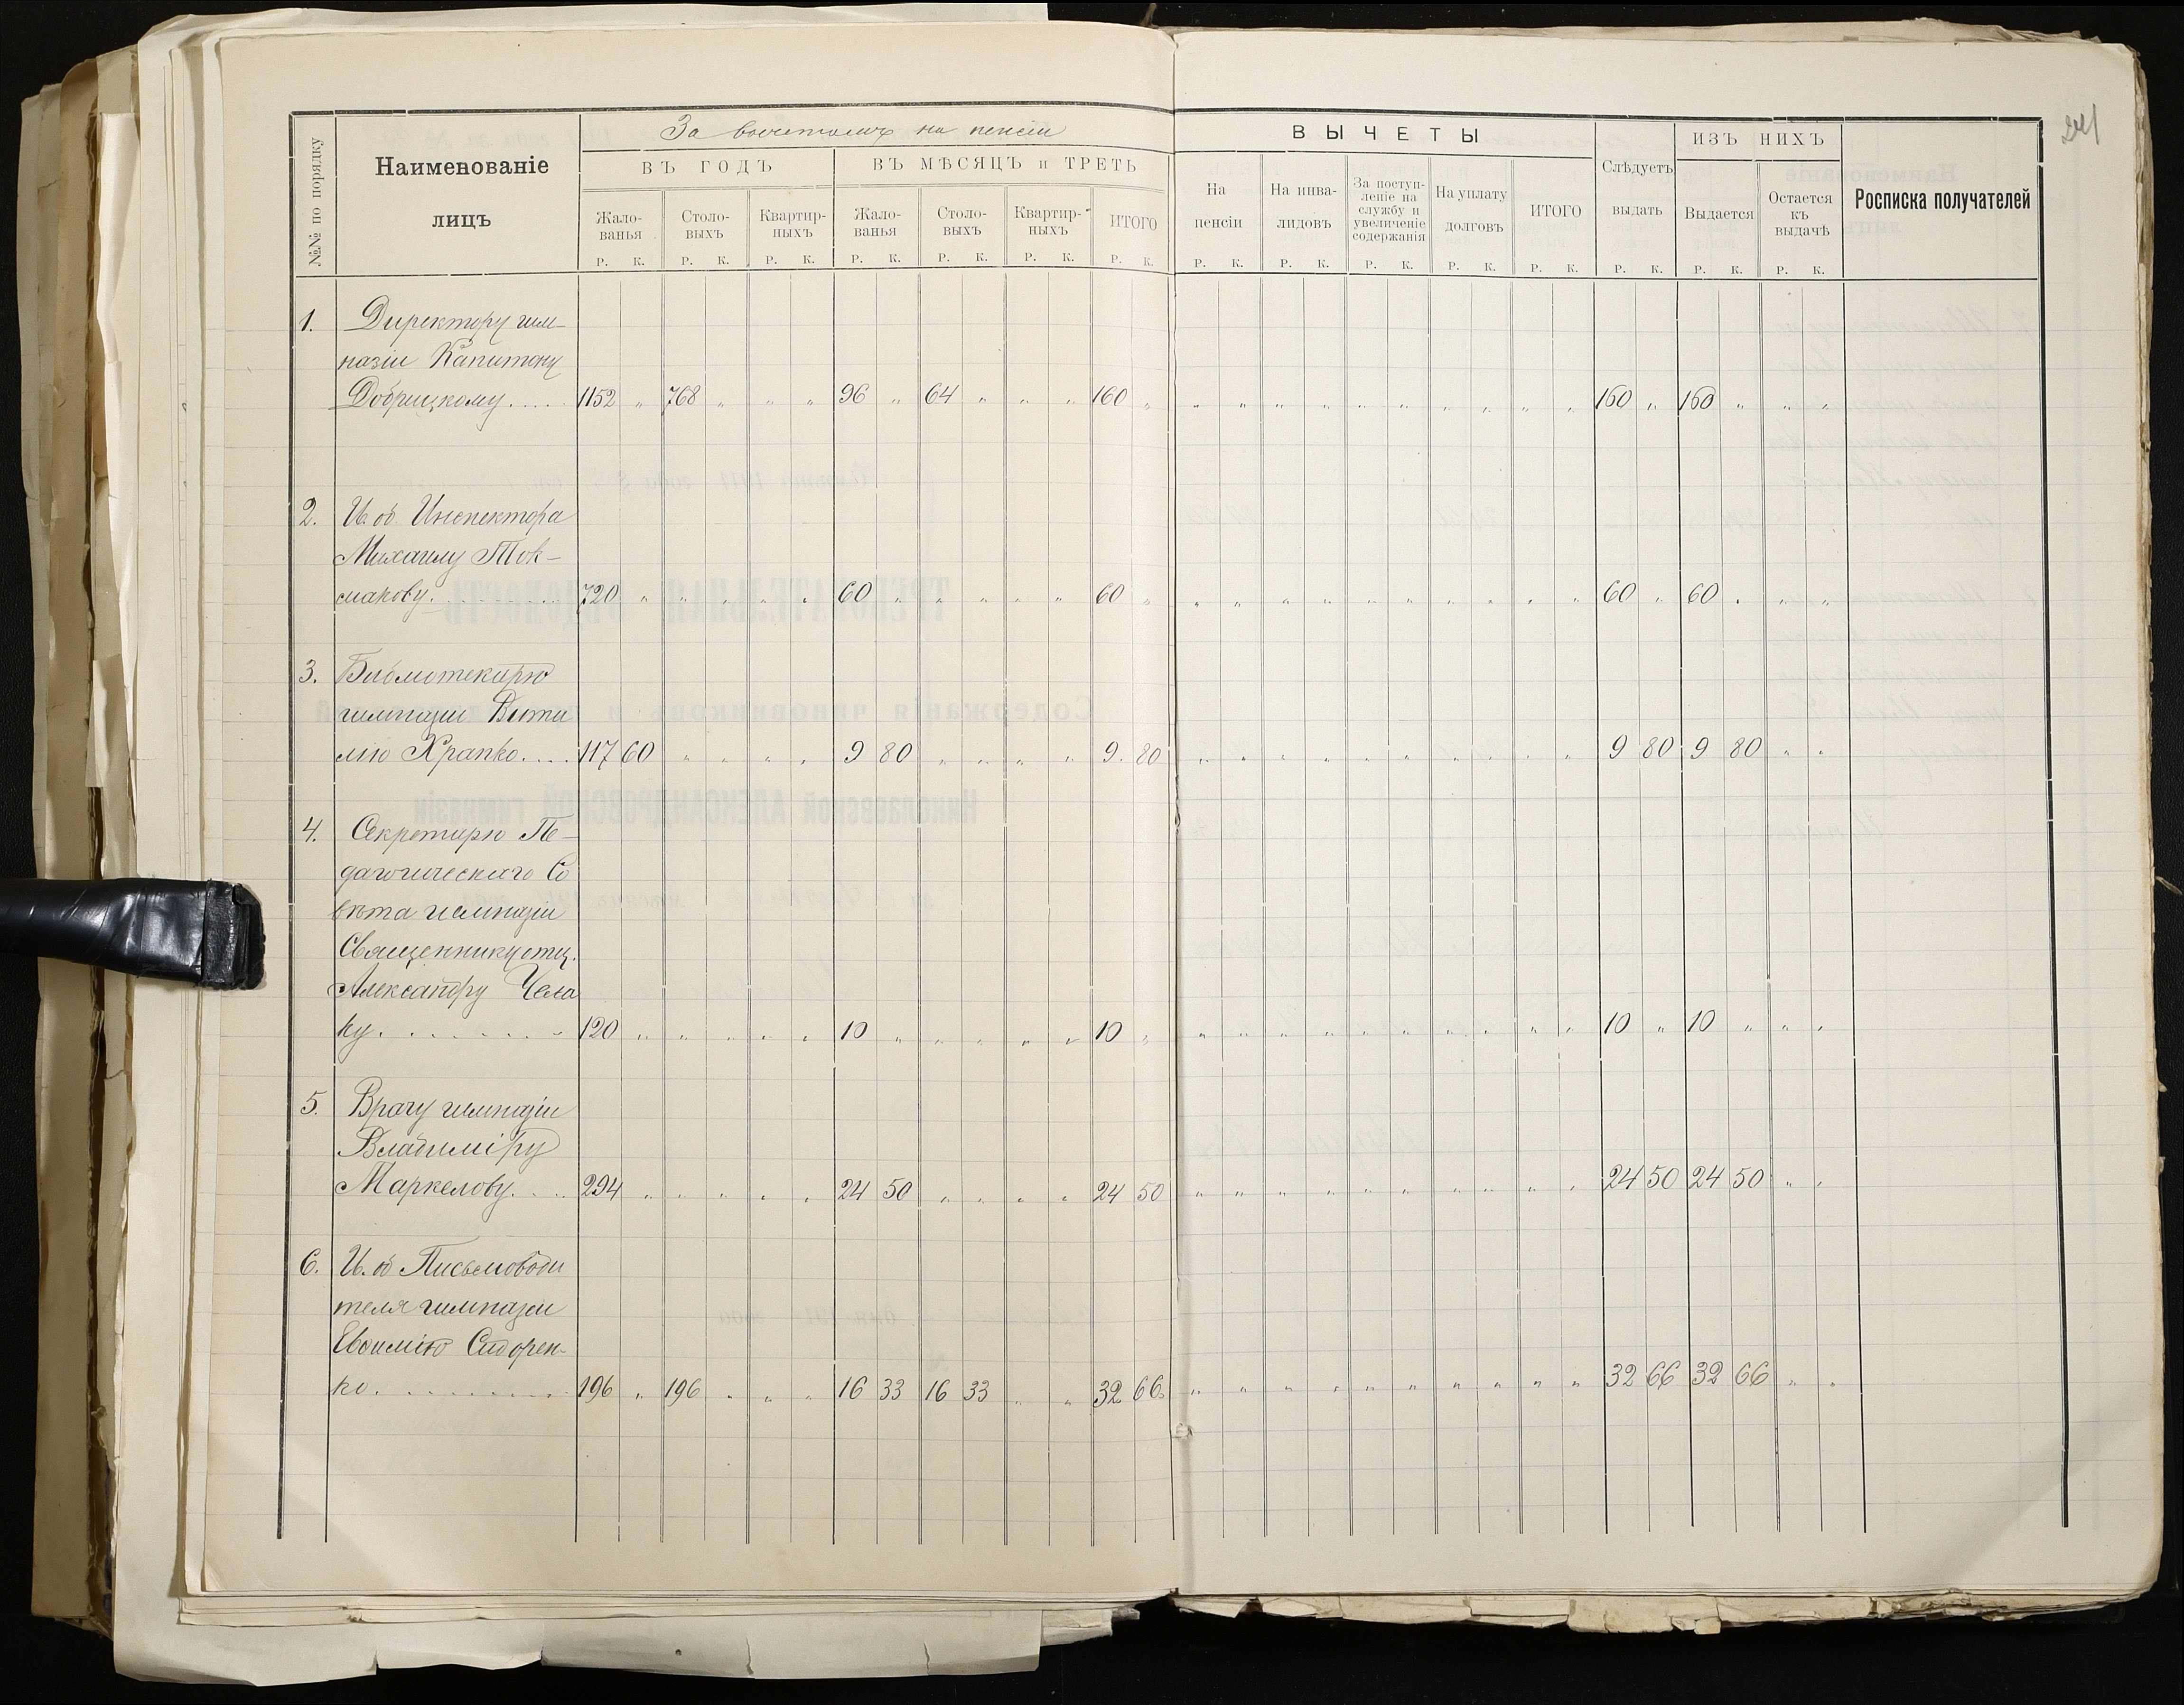 За вычетомъ на пенсіи
№№ по порядку
Наименованіе
лицъ
ВЪ ГОДЪ
ВЪ МѢСЯЦЪ и ТРЕТЬ
Жало-
ванья
Столо-
выхъ
Квартир-
ныхъ
Жало-
ванья
Столо-
выхъ
Квартир-
ныхъ
ИТОГО
Р. К. Р. К. Р. К. Р. К. Р. К. Р. К. Р. К.
ВЫЧЕТЫ
На
пенсіи
На инва-
лидовъ
За поступ-
леніе на
службу и
увеличеніе
содержанія
На уплату
долговъ
ИТОГО
Слѣдуетъ
выдать
ИЗЪ НИХЪ
Выдается
Остается
къ
выдачѣ
Росписка получателей
Р. К. Р. К. Р. К. Р. К. Р. К. Р. К. Р. К. Р. К.
1. Директору гим-
назіи Капитону
Добрицкому.... 1152 „ 768 „ „ „ 96 „ 64 „ „ „ 160 „ „ „ „ „ „ „ „ „ „ „ 160 „ 160 „ „ „
2. И. об. Инспектора
Михаилу Ток-
макову. 720 „ „ „ „ „ 60 „ „ „ „ „ 60 „ „ „ „ „ „ „ „ „ „ „ 60 „ 60 „ „ „
3. Библиотекарю
гимназіи Вита
лію Храпко.... 117 60 „ „ „ „ 9 80 „ „ „ „ 9. 80 „ „ „ „ „ „ „ „ „ „ 9 80 9 80 „ „
4. Секретарю Пе-
дагогическаго Со
вѣта гимназіи
Священнику отц.
Александру Чела
ку. 120 „ „ „ „ „ 10 „ „ „ „ „ 10 „ „ „ „ „ „ „ „ „ „ „ 10 „ 10 „ „ „
5. Врачу гимназіи
Владиміру
Маркелову. 294 „ „ „ „ „ 24 50 „ „ „ „ 24 50 „ „ „ „ „ „ „ „ „ „ 24 50 24 50 „ „
6. И. об Письмоводи
теля гимназіи
Евѳимію Сидорен-
ко. 196 „ 196 „ „ „ 16 33 16 33 „ „ 32 66 „ „ „ „ „ „ „ „ „ „ 32 66 32 66 „ „